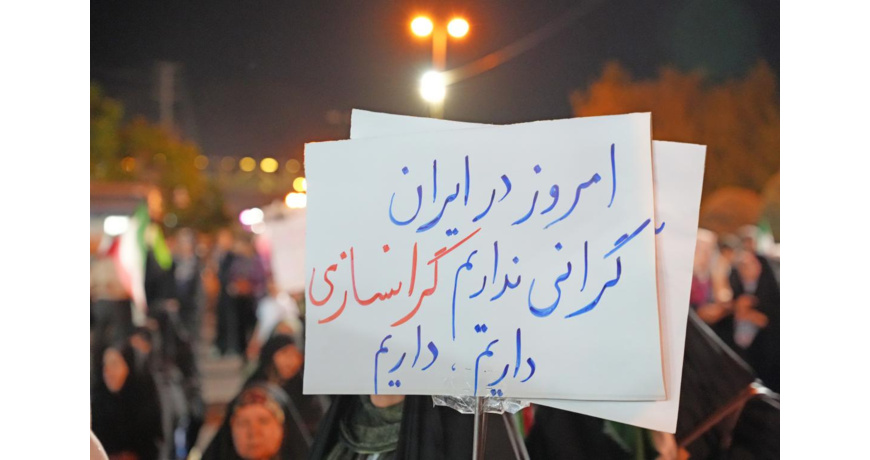 امروز در ایران
گرانی نداریم گرانسازی
داریم ، داریم